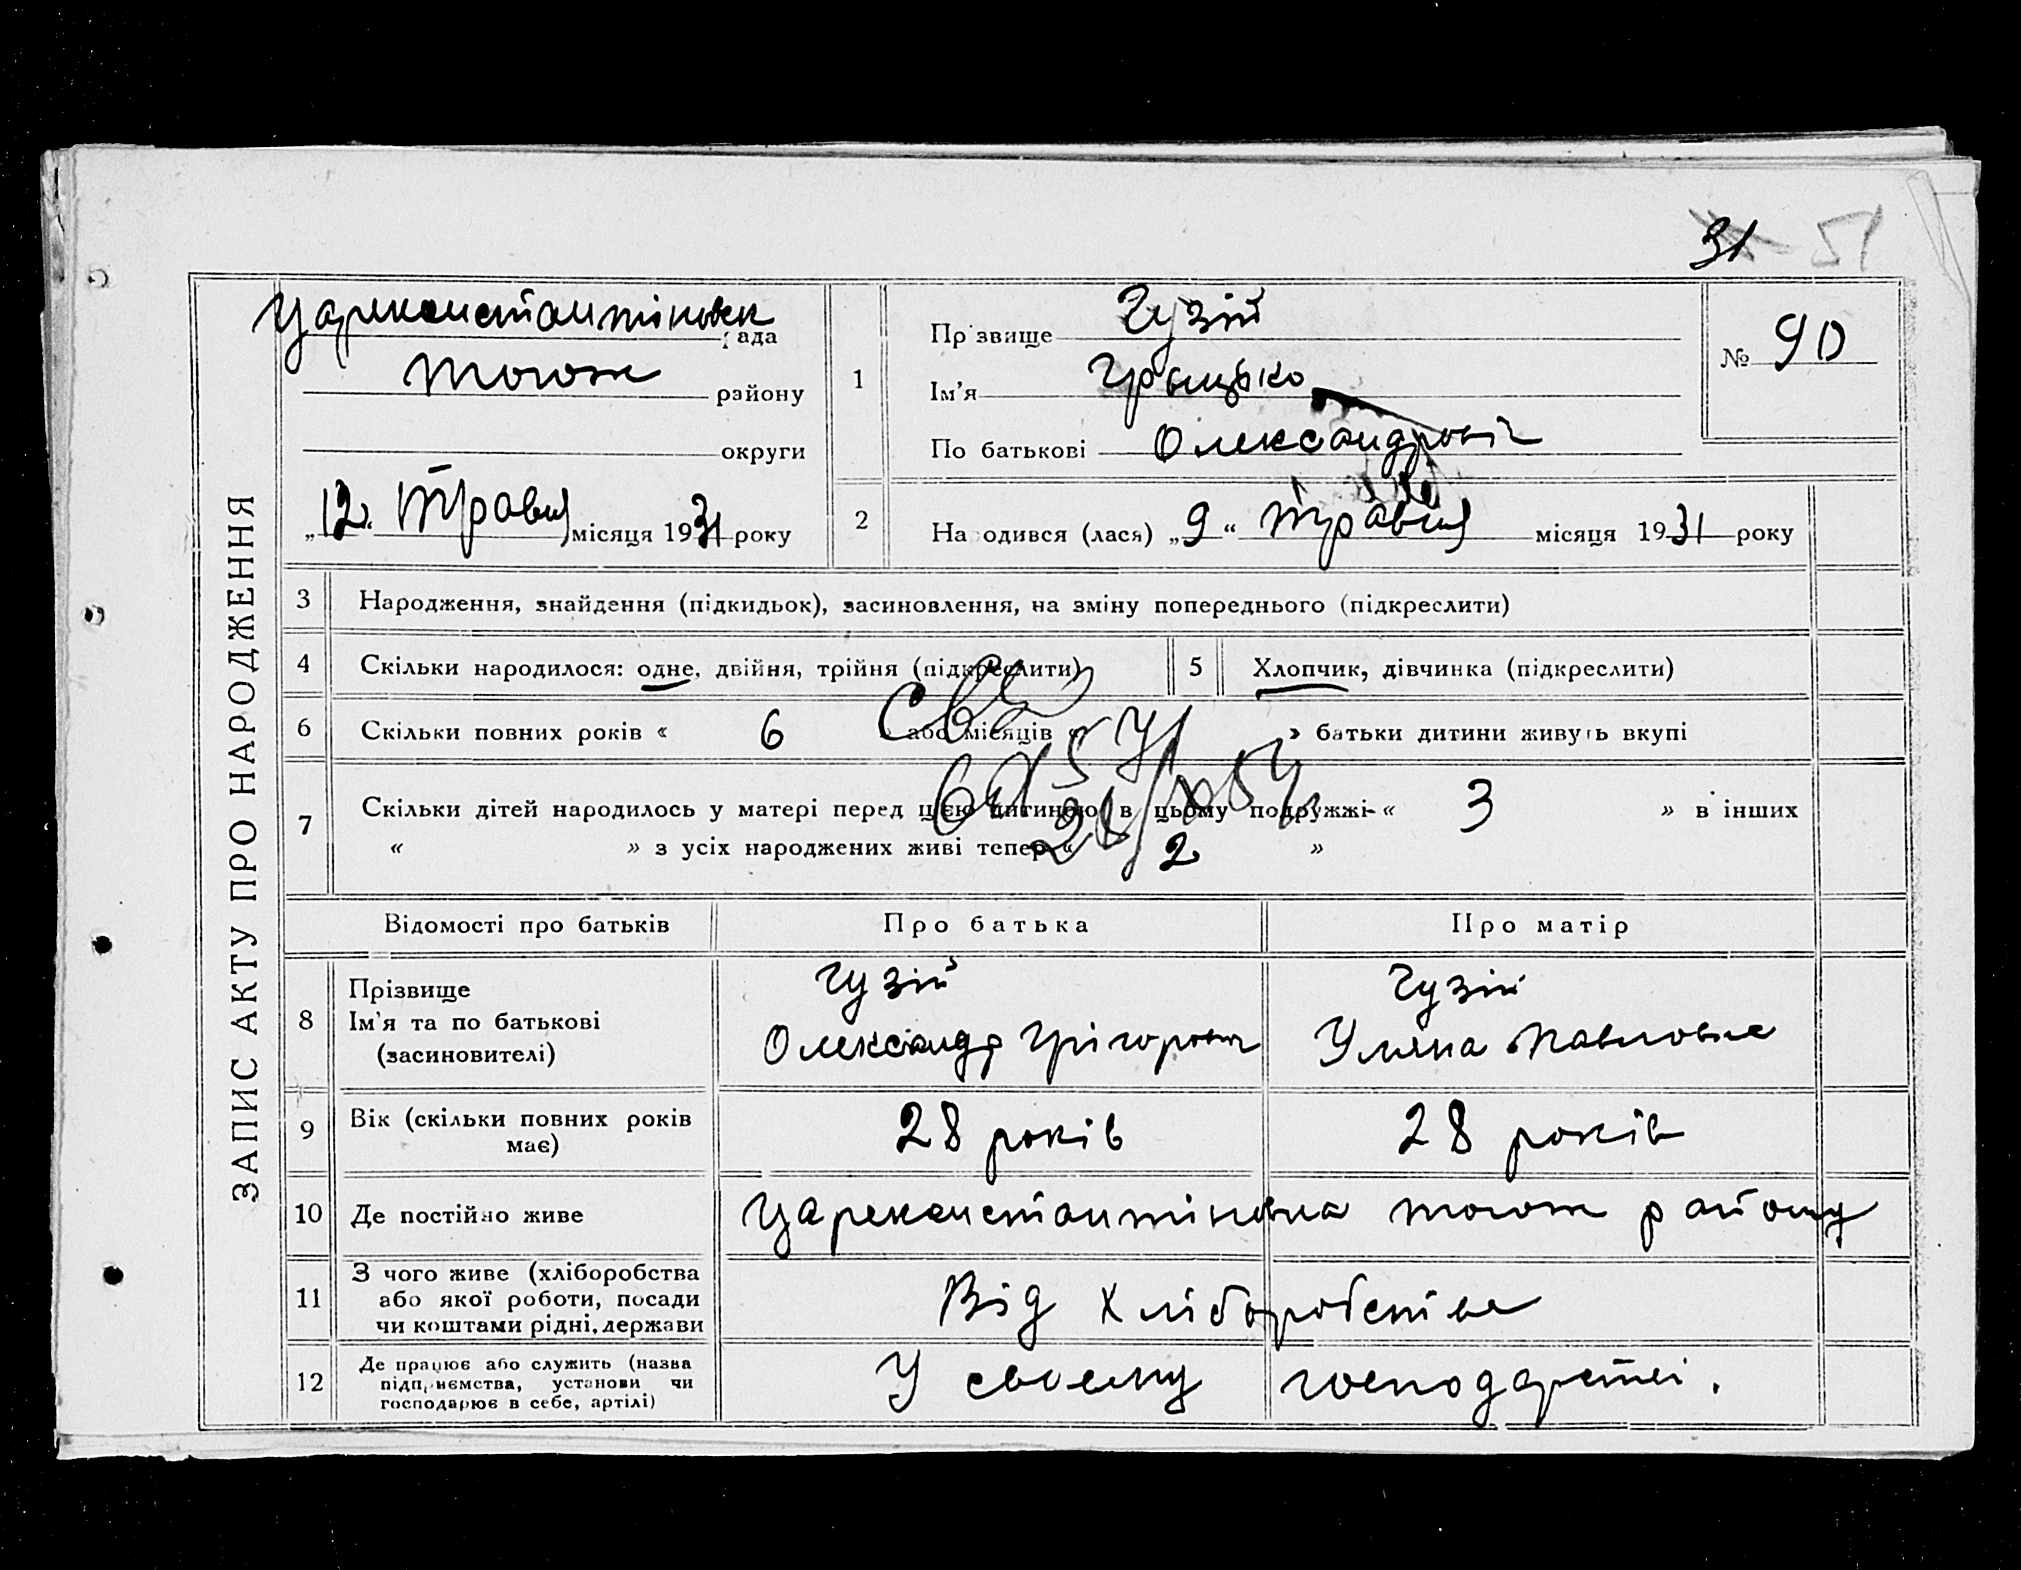 31 51
ЗАПИС АКТУ ПРО НАРОДЖЕННЯ
Цареконстантіновск рада
району
округи
„12. Травня місяця 1931 року
1
Прізвище Гузій
Ім'я Грицько
По батькові Олександровіч
№ 90
2
Народився (лася) „9“ травня місяця 1931 року
3 Народження, знайдення (підкидьок), засиновлення, на зміну попереднього (підкреслити)
4 Скільки народилося: одне, двійня, трійня (підкреслити)
5 Хлопчик, дівчинка (підкреслити)
6 Скільки повних років « 6 або місяців « » батьки дитини живуть вкупі
7 Скільки дітей народилось у матері перед цією дитиною: в цьому подружжі- « 3 » в інших
« » з усіх народжених живі тепер « 2 »
Відомості про батьків Про батька Про матір
8 Прізвище
Ім'я та по батькові
(засиновителі)
Гузій
Олександр Грігорович
Гузій
Уляна Павловна
9 Вік (скільки повних років має)
28 років 28 років
10 Де постійно живе
Цареконстантіновка району
11 З чого живе (хліборобства
або якої роботи, посади
чи коштами рідні, держави
Від хліборобства
12 Де працює або служить (назва
підприємства, установи чи
господарює в себе, артілі)
У своєму господарстві.